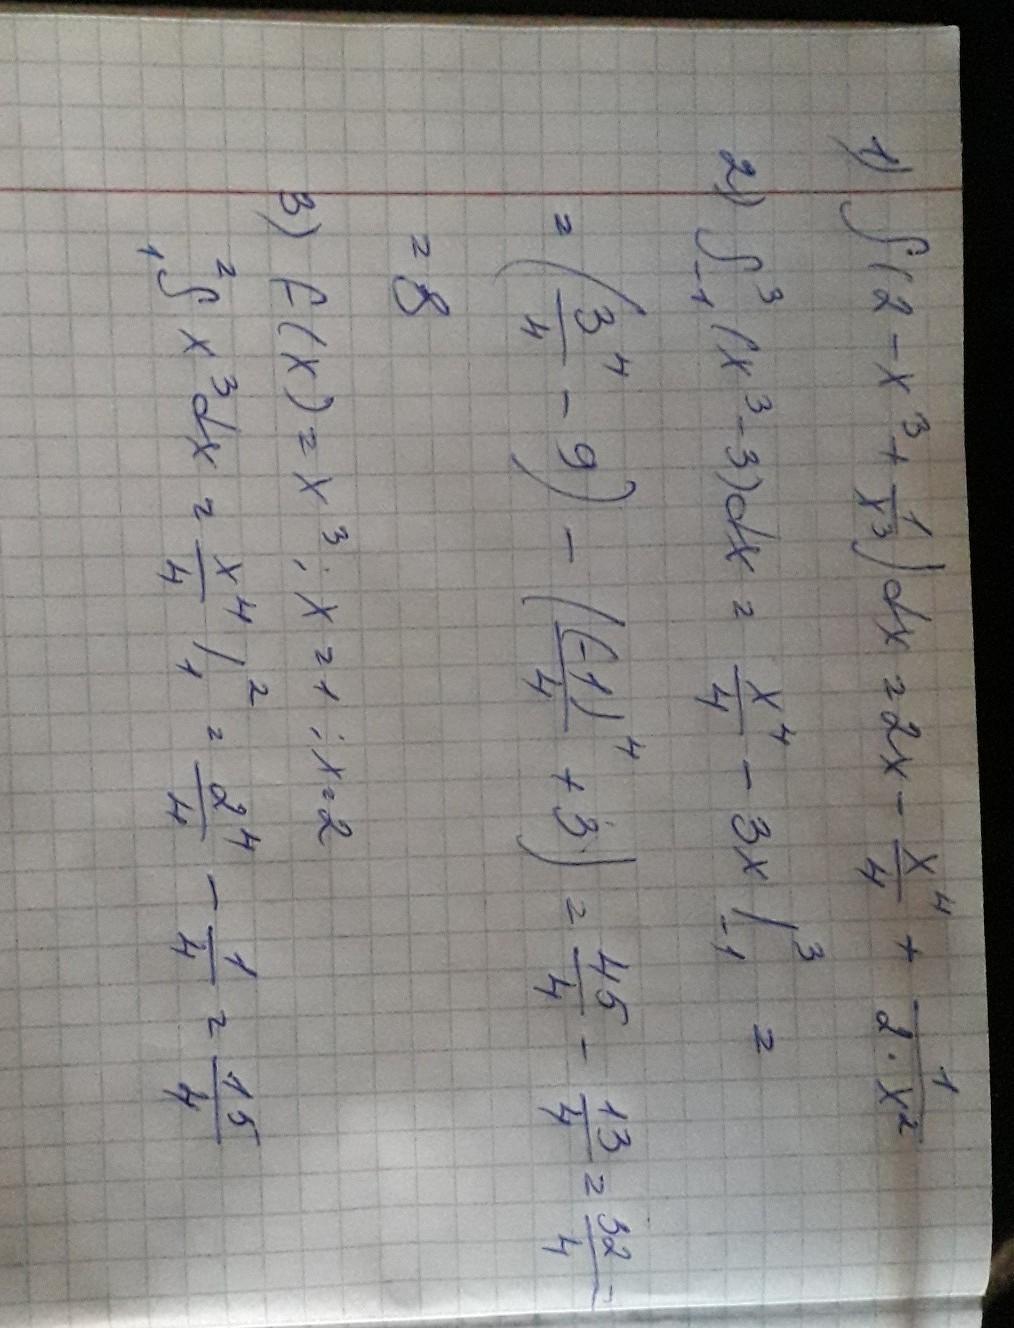 1) ∫(2-x³+1/x³)dx=2x-x⁴/4+1/2·x²
2) ∫₋₁³(x³-3)dx=x⁴/4-3x|₋₁³=
=(3⁴/4-9)-((-1)⁴/4+3)=45/4-13/4=32/4=
=8
3) f(x)=x³; x=1; x=2
₁²∫x³dx=x⁴/4|₁²=2⁴/4-1/4=15/4